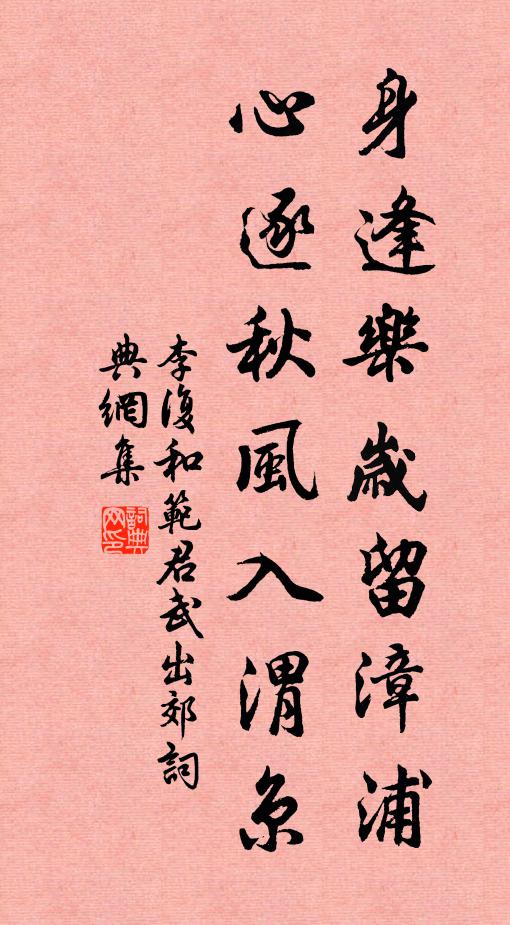 身逢樂歲留漳浦
心逐秋風入渭京
李復和範君武出郊詞
典網集
詞典網印